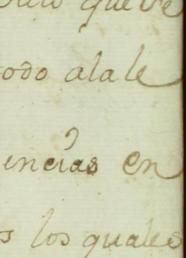 que ve
odo alale
incias en
s los quales